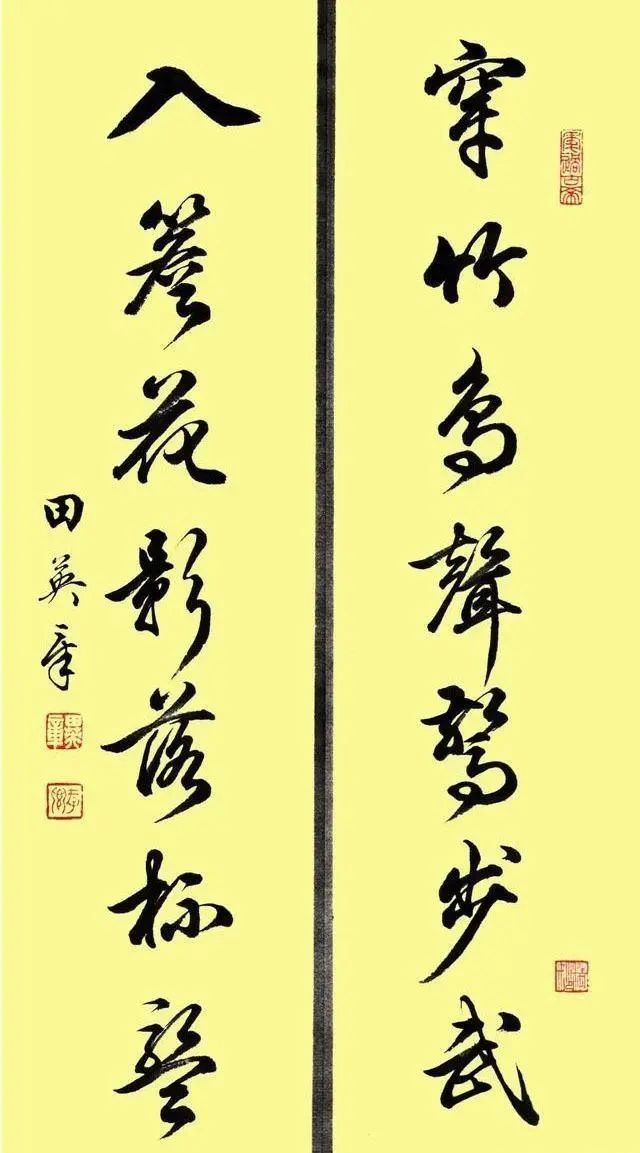 穿竹鳥聲驚步武
入簷花影落杯盤
田英章